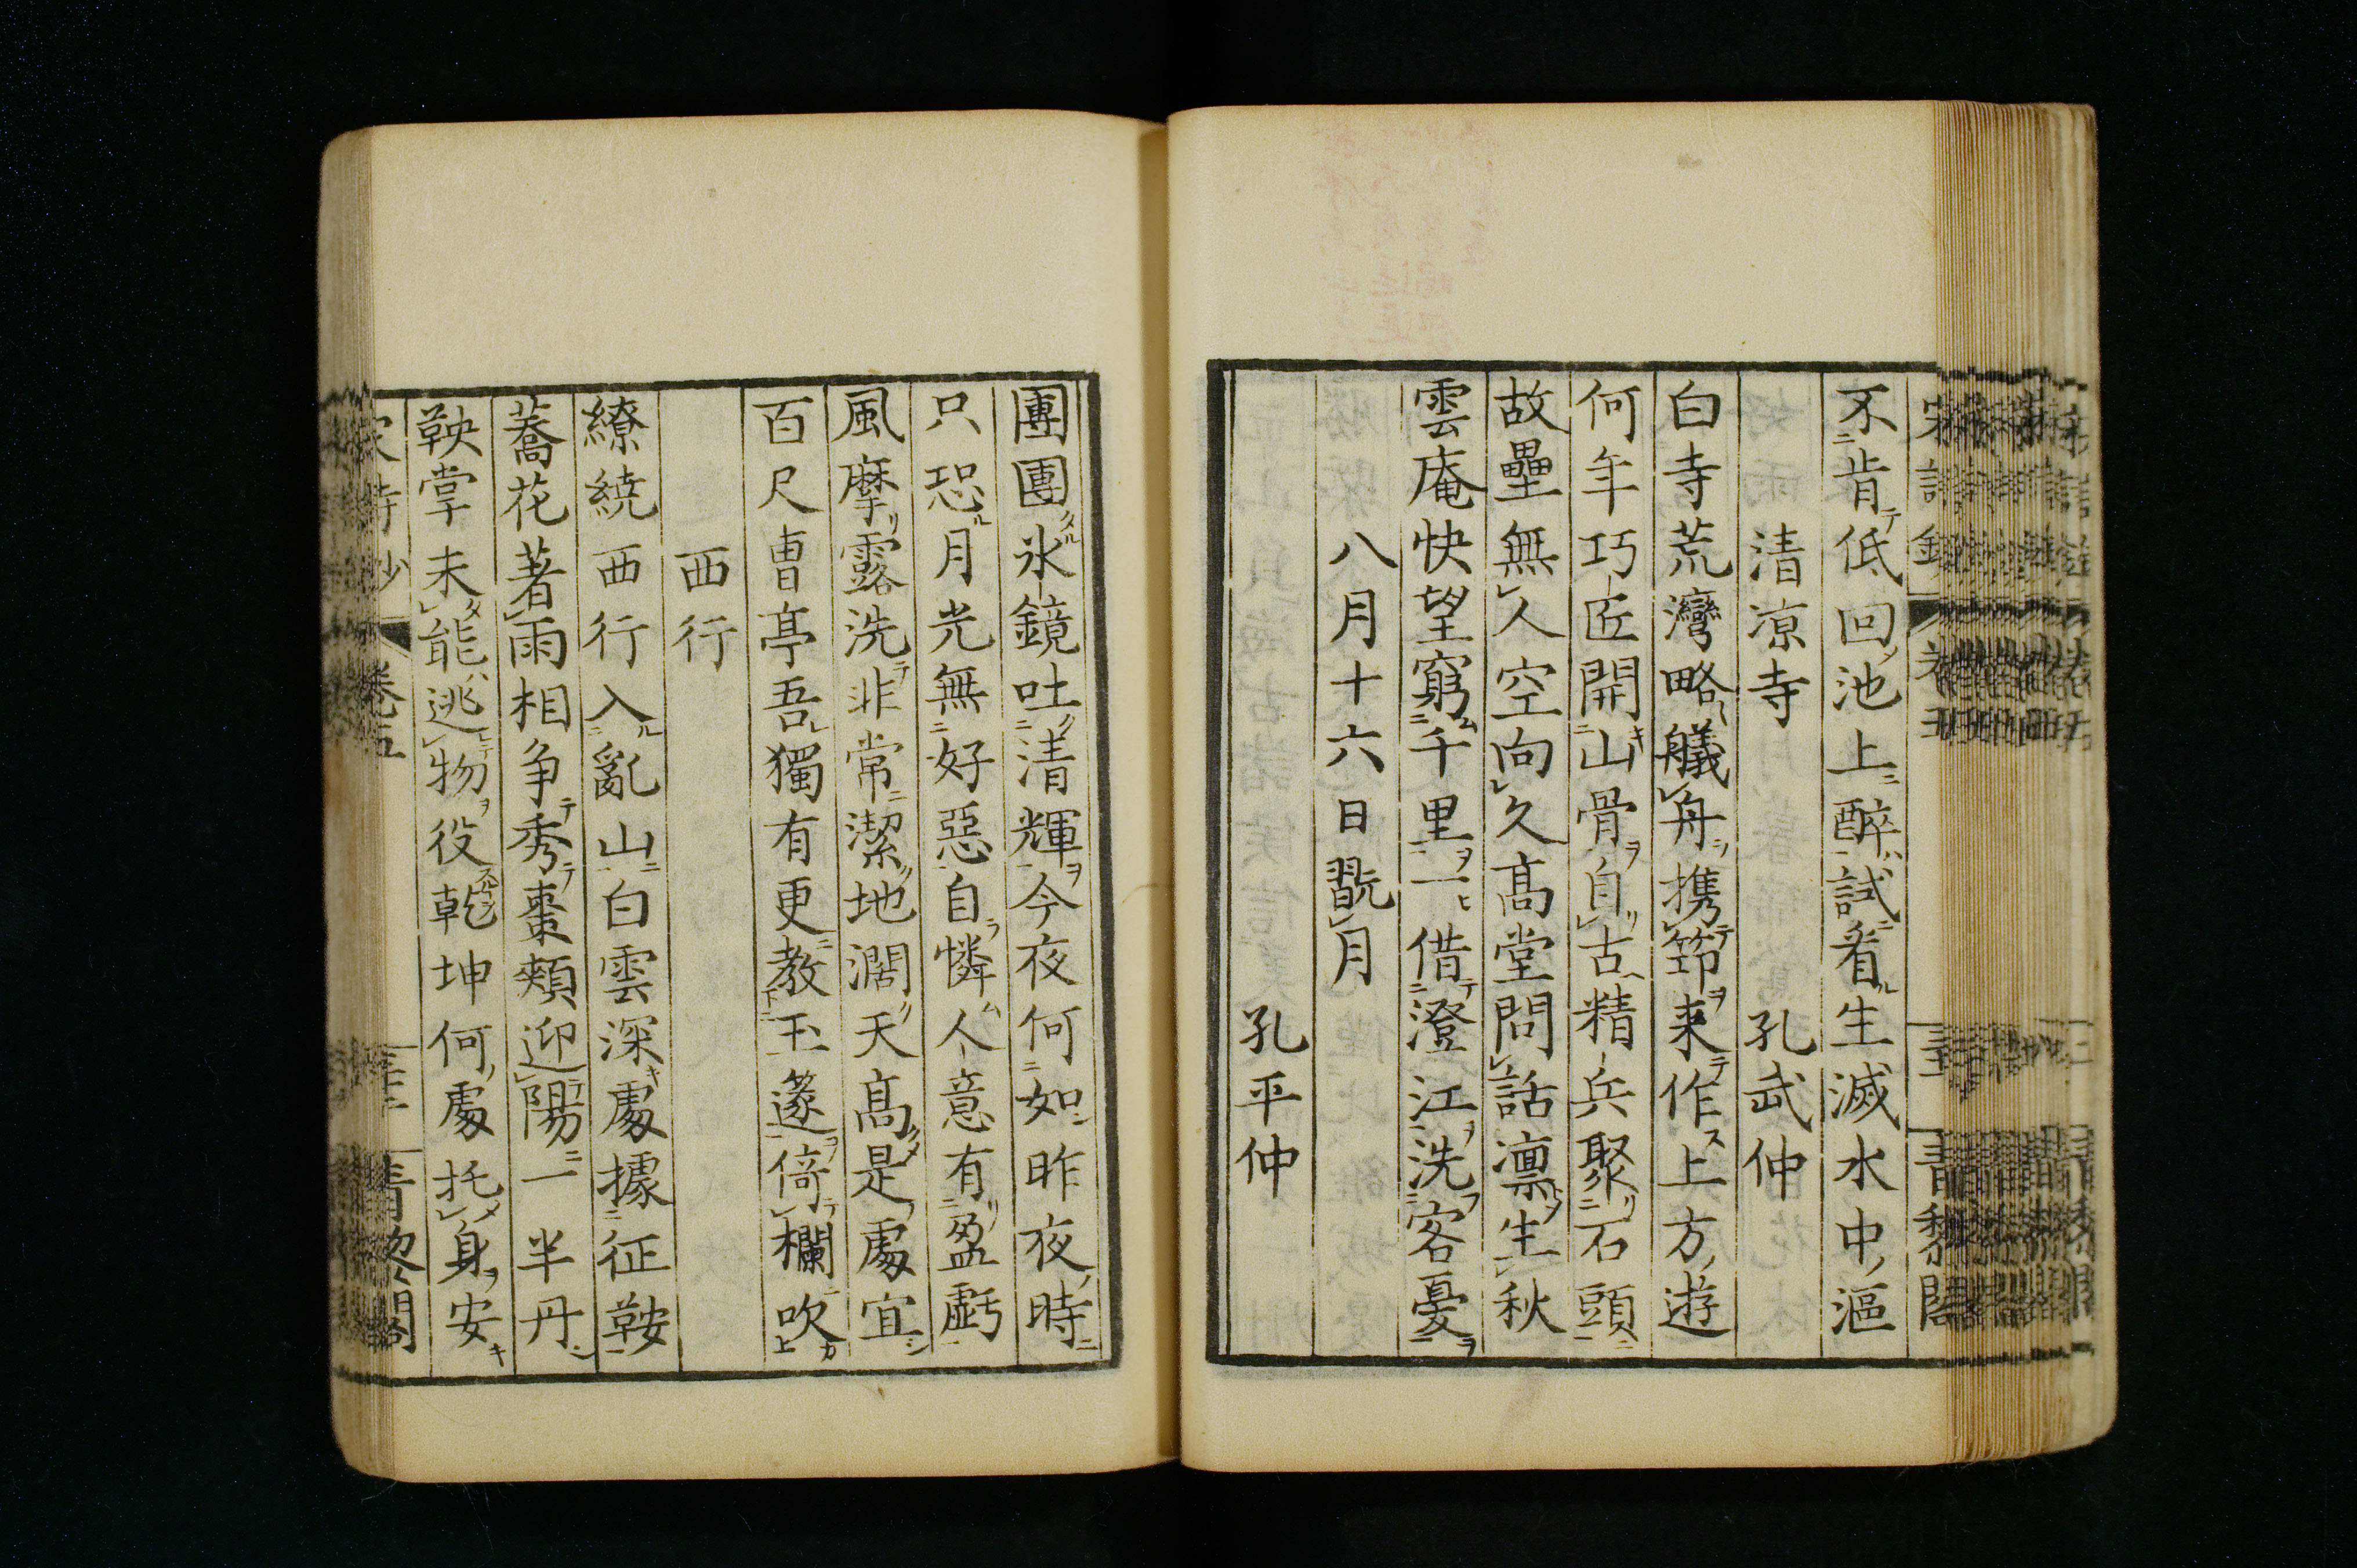 不肯低回池上醉試看生滅水中漚
清凉寺 孔武仲
白寺荒灣略艤舟携筇來作上方遊
何年巧匠開山骨自古精兵聚石頭
故壘無人空向久髙堂問話凛生秋
雲庵快望窮千里一借澄江洗客憂
八月十六日翫月
孔平仲
團團氷鏡吐清輝今夜何如昨夜時
只恐月光無好惡自憐人意有盈虧
風摩露洗非常潔地濶天髙是處宜
百尺曹亭吾獨有更教玉篴倚欄吹
西行
繚繞西行入亂山白雲深處據征鞍
蕎花著雨相争秀棗頰迎陽一半丹
鞅掌未能逃物役乾坤何處托身安
卷五